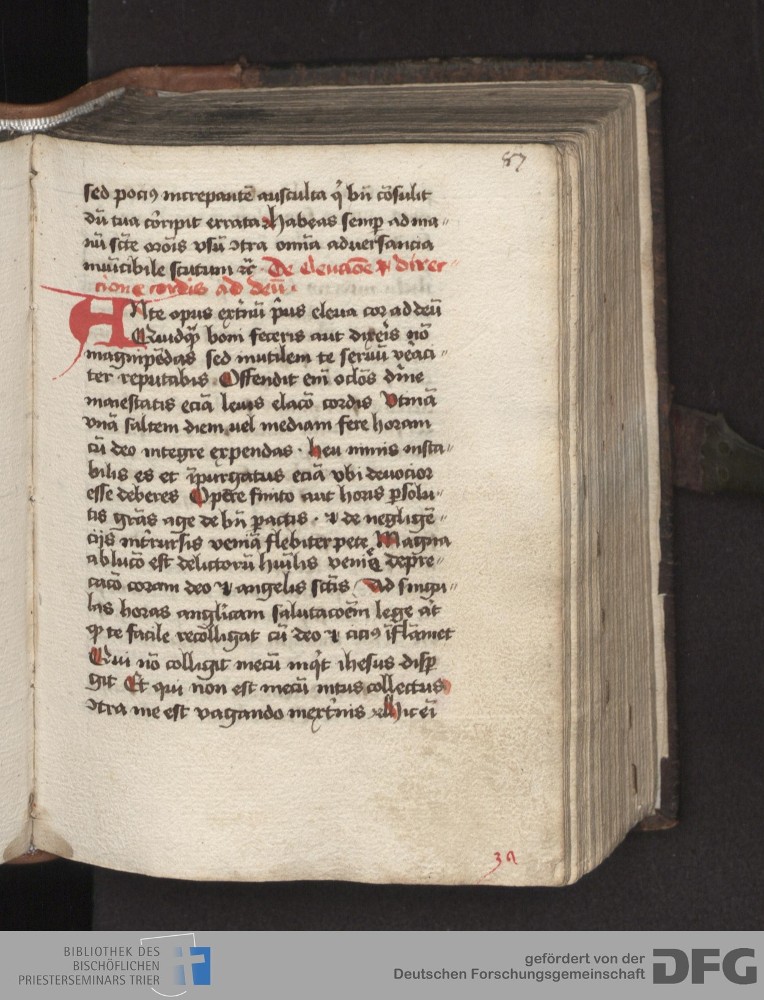 87
sed pociꝰ increpantē ausculta q̇ bn̄ cōsulit
dū tua cōrripit errata Habeas semꝑ ad ma〃
nū scīe orōis vsū ↄtra om̄ia aduersancia
inuīcibile scutum ꝛc̄ · De eleuacōe ⁊ direc〃
cione cordis ad deū ·
ANte opus ext'nū p̄us eleua cor ad deū
Quidqͥꝫ boni feceris aut dixeris nō
magnipēdas sed inutilem te seruū veraci〃
ter reputabis · Offendit em̄ oclōs dīne
maiestatis eciā leuis elacō cordis Vtinā
vnā saltem diem uel mediam fere horam
cū deo integre expendas · heu nimis insta〃
bilis es et īpurgatus eciā vbi deuocior
esse deberes Oꝑe finito aut horis ꝑsolu〃
tis grās age de bn̄ ꝑactis · ⁊ de negligē〃
cijs int'cursis veniā flebiter pete Magna
ablucō est delictorū hūilis venie depre〃
cacō coram deo ⁊ angelis sc̄tis / Ad singu〃
las horas anglicam salutacōem lege
ꝙ te facile recolligat cū deo ⁊ ciciꝰ īflāmet
Qui nō colligit mecū inqͥt ihesus disꝑ
git Et qui non est mecū intus collectus
ↄtra me est vagando in ext'nis Hic ei
3a
BIBLIOTHEK DES
BISCHÖFLICHEN
PRIESTERSEMINARS TRIER
gefördert von der
Deutschen Forschungsgemeinschaft
DFG